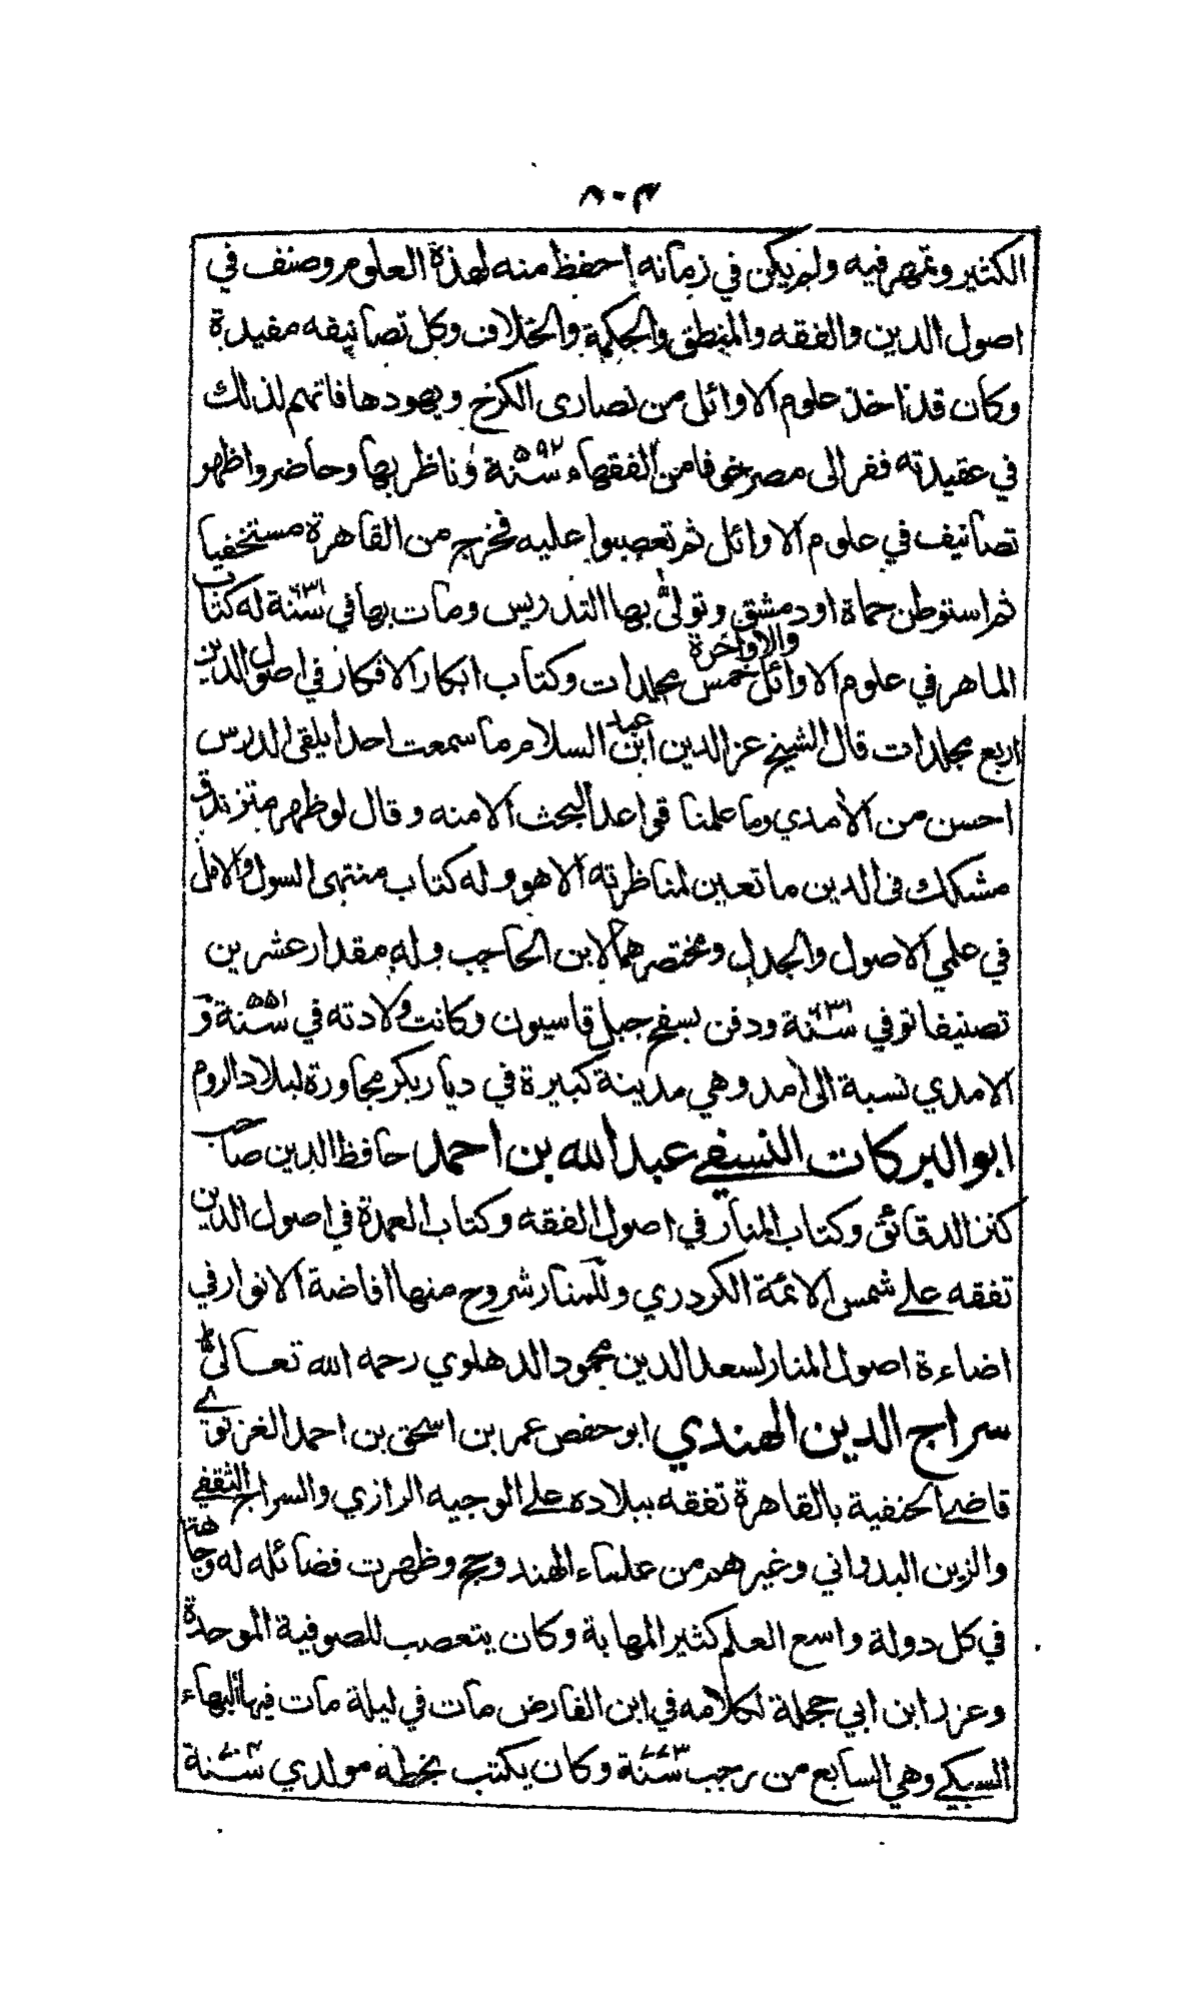 ٨٠٣
الكثير وتمهر فيه ولم يكن في زمانه احفظ منه لهذه العلوم وصنف في
اصول الدين والفقه والمنطق والحكمة والخلاف وكل تصانيفه مفيدة
وكان قد اخذ علوم الاوائل من نصارى الكرخ ويهودها فاتهم لذلك
في عقيدته ففر الى مصر خوفا من الفقهاء سنة ٥٩٢ وناظر بها وحاضر واظهر
تصانيف في علوم الاوائل ثم تعصبوا عليه فخرج من القاهرة مستخفيا
ثم استوطن حماة او دمشق وتولى بها التدريس ومات بها في سنة ٦٣١ له كتاب
الماهر في علوم الاوائل والاواخرة خمس مجلدات وكتاب ابكار الافكار في اصول الدين
اربع مجلدات قال الشيخ عز الدين ابن عبد السلام ما سمعت احدا يلقى الدرس
احسن من الآمدي وما علمنا قواعد البحث الا منه وقال لو ظهر متزندق
مشكك في الدين ما تعين لمناظرته الا هو وله كتاب منتهى السول والامل
في علمي الاصول والجدل ومختصرهما لابن الحاجب وله مقدار عشرين
تصنيفا توفي سنة ٦٣١ ودفن بسفح جبل قاسيون وكانت ولادته في سنة ٥٥١ و
الامدي نسبة الى آمد وهي مدينة كبيرة في ديار بكر مجاورة لبلاد الروم
ابو البركات النسفي عبد الله بن احمد حافظ الدين صاحب
كنز الدقائق وكتاب المنار في اصول الفقه وكتاب العمدة في اصول الدين
تفقه على شمس الائمة الكردري وللمنار شروح منها افاضة الانوار في
اضاءة اصول المنار لسعد الدين محمود الدهلوي رحمه الله تعالى
سراج الدين الهندي ابو حفص عمر بن اسحق بن احمد الغزنوي
قاضي الحنفية بالقاهرة تفقه ببلاده على الوجيه الرازي والسراج الثقفي
والزين البدواني وغيرهم من علماء الهند وحج وظهرت فضائله له وجاهة
في كل دولة واسع العلم كثير المهابة وكان يتعصب للصوفية الموحدة
وعزر ابن ابي حجلة لكلامه في ابن الفارض مات في ليلة مات فيها البهاء
السبكي وهي السابع من رجب سنة ٧٧٣ وكان يكتب بخطه مولدي سنة ٧٠٤